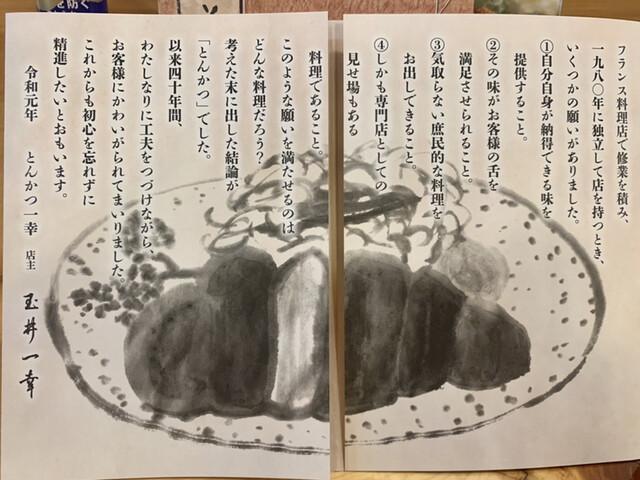 フランス料理店で修業を積み、
一九八〇年に独立して店を持つとき、
いくつかの願いがありました。
①自分自身が納得できる味を
提供すること。
②その味がお客様の舌を
満足させられること。
③気取らない庶民的な料理を
お出しできること。
④しかも専門店としての
見せ場もある
料理であること。
このような願いを満たせるのは
どんな料理だろう？
考えた末に出した結論が
「とんかつ」でした。
以来四十年間、
わたしなりに工夫をつづけながら、
お客様にかわいがられてまいりました。
これからも初心を忘れずに
精進したいとおもいます。
令和元年 とんかつ一幸 店主 玉井一幸
を防ぐ